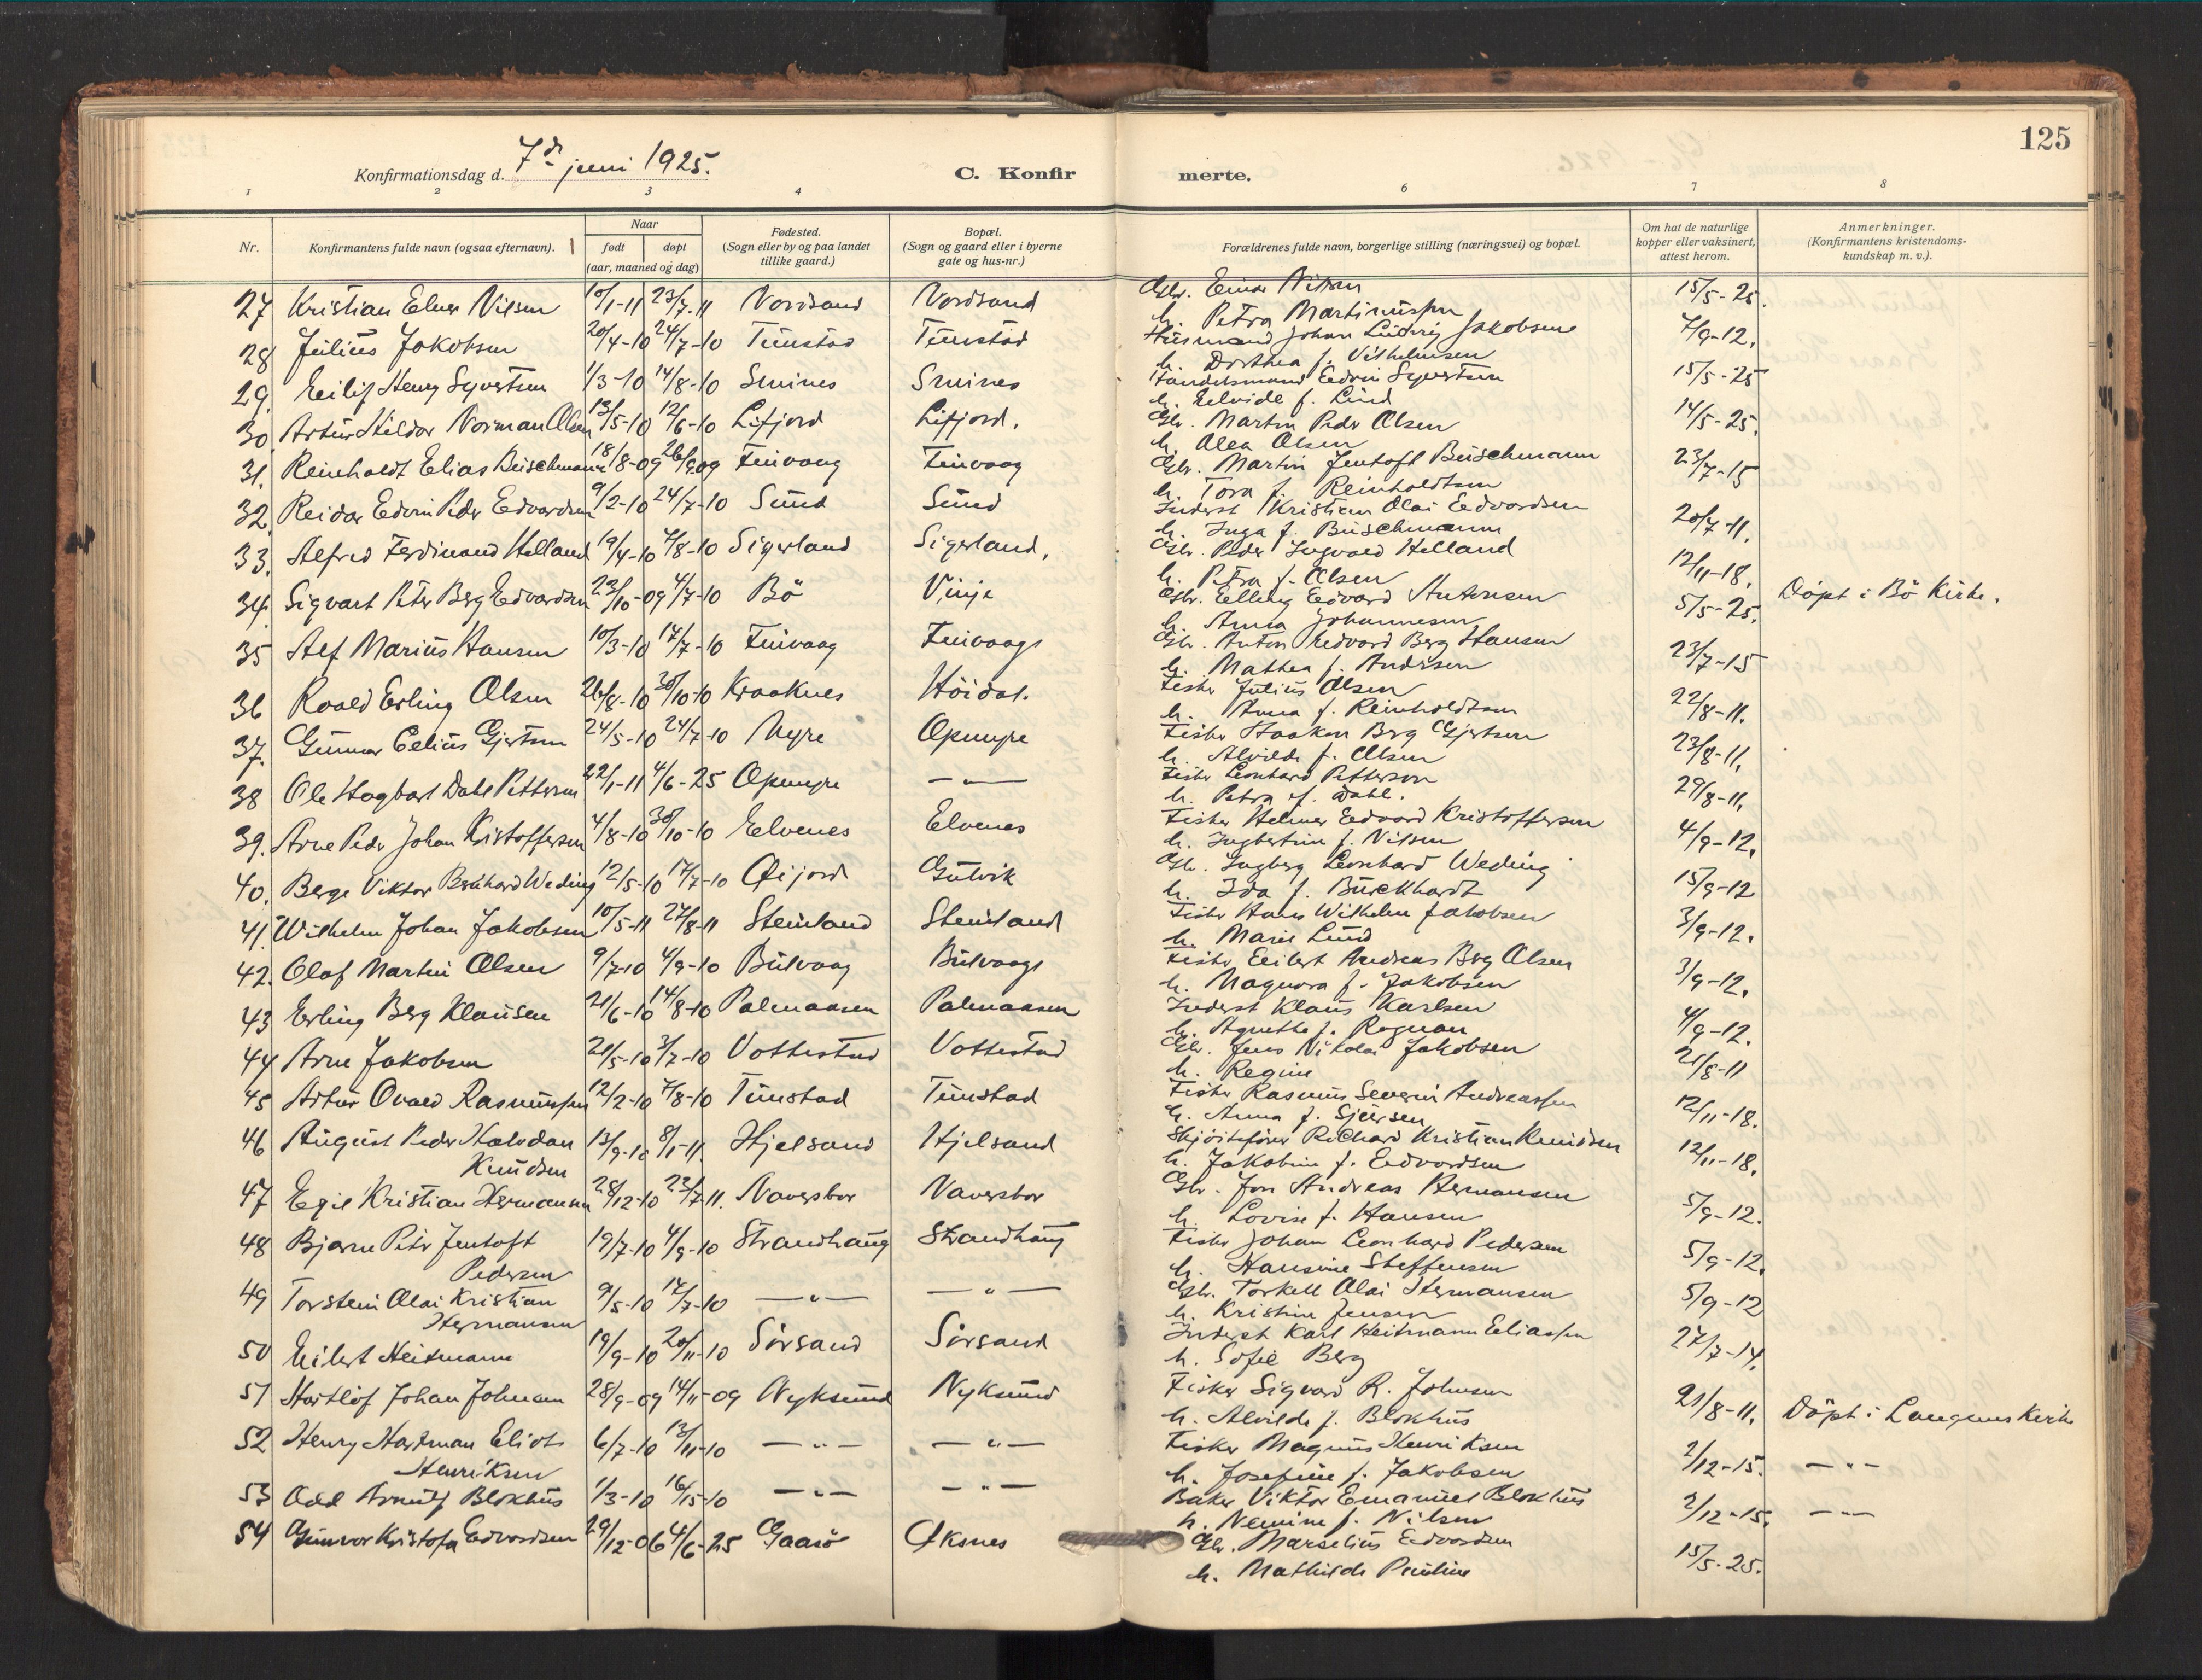 125
Konfirmationsdag d. 7de juni 1925. C. Konfirmerte.
1 2 3 4 6 7 8
Nr. Konfirmantens fulde navn (ogsaa efternavn). Naar født døpt (aar, maaned og dag) Fødested. (Sogn eller by og paa landet tillike gaard.) Bopæl. (Sogn og gaard eller i byerne gate og hus-nr.) Forældrenes fulde navn, borgerlige stilling (næringsvei) og bopæl. Om hat de naturlige kopper eller vaksinert, attest herom. Anmerkninger. (Konfirmantens kristendomskundskap m. v.).
27 Kristian Elner Nilsen 10/1-11 23/7-11 Nordsand Nordsand Gbr. Einar Nilsen 15/5-25.
h. Petra Martinussen
28 Julius Jakobsen 20/4-10 24/7-10 Tunstad Tunstad Husmand Johan Ludvig Jakobsen 7/9-12.
h. Dorthea f. Vilhelmsen
29. Eilif Henry Syvertsen 1/3-10 14/8-10 Smines Smines Handelsmand Edvin Syvertsen 15/5-25
h. Elvide f. Lind
30. Artur Hildor Norman Olsen 13/5-10 12/6-10 Lifjord Lifjord. Gbr. Martin Peder Olsen 14/5-25.
h. Olea Olsen
31. Reinholdt Elias Buschmann 18/8-09 26/9-09 Finvaag Finvaag Gbr. Martin Jentoft Buschmann 23/7-15
h. Tora f. Reinholdtsen
32. Reidar Edvin Peder Edvardsen 9/2-10 24/7-10 Sund Sund Inderst Kristian Olai Edvardsen 20/7-11.
h. Inga f. Buschmann
33. Alfred Ferdinand Helland 19/4-10 7/8-10 Sigerland Sigerland. Gbr. Peder Ingvald Helland 12/11-18.
h. Petra f. Olsen
34. Sigvart Peter Berg Edvardsen 22/10-09 4/7-10 Bö Vinje Gbr. Elling Edvard Antonsen 5/5-25. Döpt i Bö Kirke.
h. Anna Johannesen
35 Alf Marius Hansen 10/3-10 17/7-10 Finvaag Finvaag Gbr. Anton Edvard Berg Hansen 23/7-15
h. Mathea f. Andersen
36 Roald Erling Olsen 26/8-10 30/10-10 Kraaknes Höidal. Fisker Julius Olsen 22/8-11.
h. Anna f. Reinholdtsen
37. Gunnar Celius Gjertsen 24/5-10 24/7-10 Myre Opmyre Fisker Haakon Berg Gjertsen 23/8-11.
h. Alvilde f. Olsen
38 Ole Hagbart Dahl Pettersen 22/1-11 4/6-25 Opmyre — " — Fisker Leonhard Petterson 29/8-11.
h. Petra f. Dahl.
39. Arne Peder Johan Kristoffersen 4/8-10 30/10-10 Elvenes Elvenes Fisker Helmer Edvard Kristoffersen 4/9-12.
h. Ingbertine f. Nilsen
40. Berge Viktor Bernhard Weding 12/5-10 17/7-10 Öijord Gutvik Gb. Ingberg Leonhard Weding 15/9-12
h. Ida f. Burckhardt
41. Wilhelm Johan Jakobsen 10/5-11 27/8-11 Steinland Steinland Fisker Hans Wilhelm Jakobsen 3/9-12.
h. Marie Lund
42. Olaf Martin Olsen 9/7-10 4/9-10 Bulvaag Bulvaag Fisker Eilert Andreas Berg Olsen 3/9-12.
h. Magnora f. Jakobsen
43 Erling Berg Klausen 21/6-10 14/8-10 Palmaasen Palmaasen Inderst Klaus Karlsen 4/9-12.
h. Agnethe f. Rognan
44 Arne Jakobsen 21/5-10 3/7-10 Vottestad Vottestad Gbr. Jens Nikolai Jakobsen 21/8-11
h. Regine
45 Artur Ovald Rasmussen 12/2-10 7/8-10 Tunstad Tunstad Fisker Rasmus Severin Andreassen 12/11-18.
h. Anna f. Sjursen
46 August Peder Halvdan 13/9-10 8/1-11. Hjelsand Hjelsand Skjöitefører Richard Kristian Knudsen 12/11-18.
Knudsen h. Jakobine f. Edvardsen
47 Egil Kristian Hermansen 28/12-10 23/7-11. Naversbor Naversbor Gbr. Jon Andreas Hermansen 5/9-12.
h. Lovise f. Hansen
48 Bjarne Peter Jentoft 19/7-10 4/9-10 Strandhaug Strandhaug Fisker Johan Leonhard Pedersen 5/9-12.
Pedersen h. Hansine Steffensen
49 Torstein Olai Kristian 9/5-10 17/7-10 — " — — " — Gbr. Torkell Olai Hermansen 5/9-12
Hermansen h. Kristine Jensen
50 Eilert Heitmann 19/9-10 20/11-10 Sörsand Sörsand Inderst Karl Heitmann Eliassen 27/7-14.
h. Sofie Berg
51 Hartlöf Johan Johnsen 28/9-09 14/11-09 Nyksund Nyksund Fisker Sigvard R. Johnsen 21/8-11. Döpt i Langenes Kirke
h. Alvilde f. Blokhus
52 Henry Hartman Eliots 6/7-10 13/11-10 — " — — " — Fisker Magnus Henriksen 2/12-15. — " —
Henriksen h. Josefine f. Jakobsen
53 Odd Arnulf Blokhus 1/3-10 16/15-10 — " — — " — Baker Viktor Emanuel Blokhus 2/12-15. — " —
h. Nemine f. Nilsen
54 Gunvor Kristofa Edvardsen 29/12-06 4/6-25 Gaasö Öksnes Gbr. Marselius Edvardsen 15/5-25.
h. Mathilde Pauline